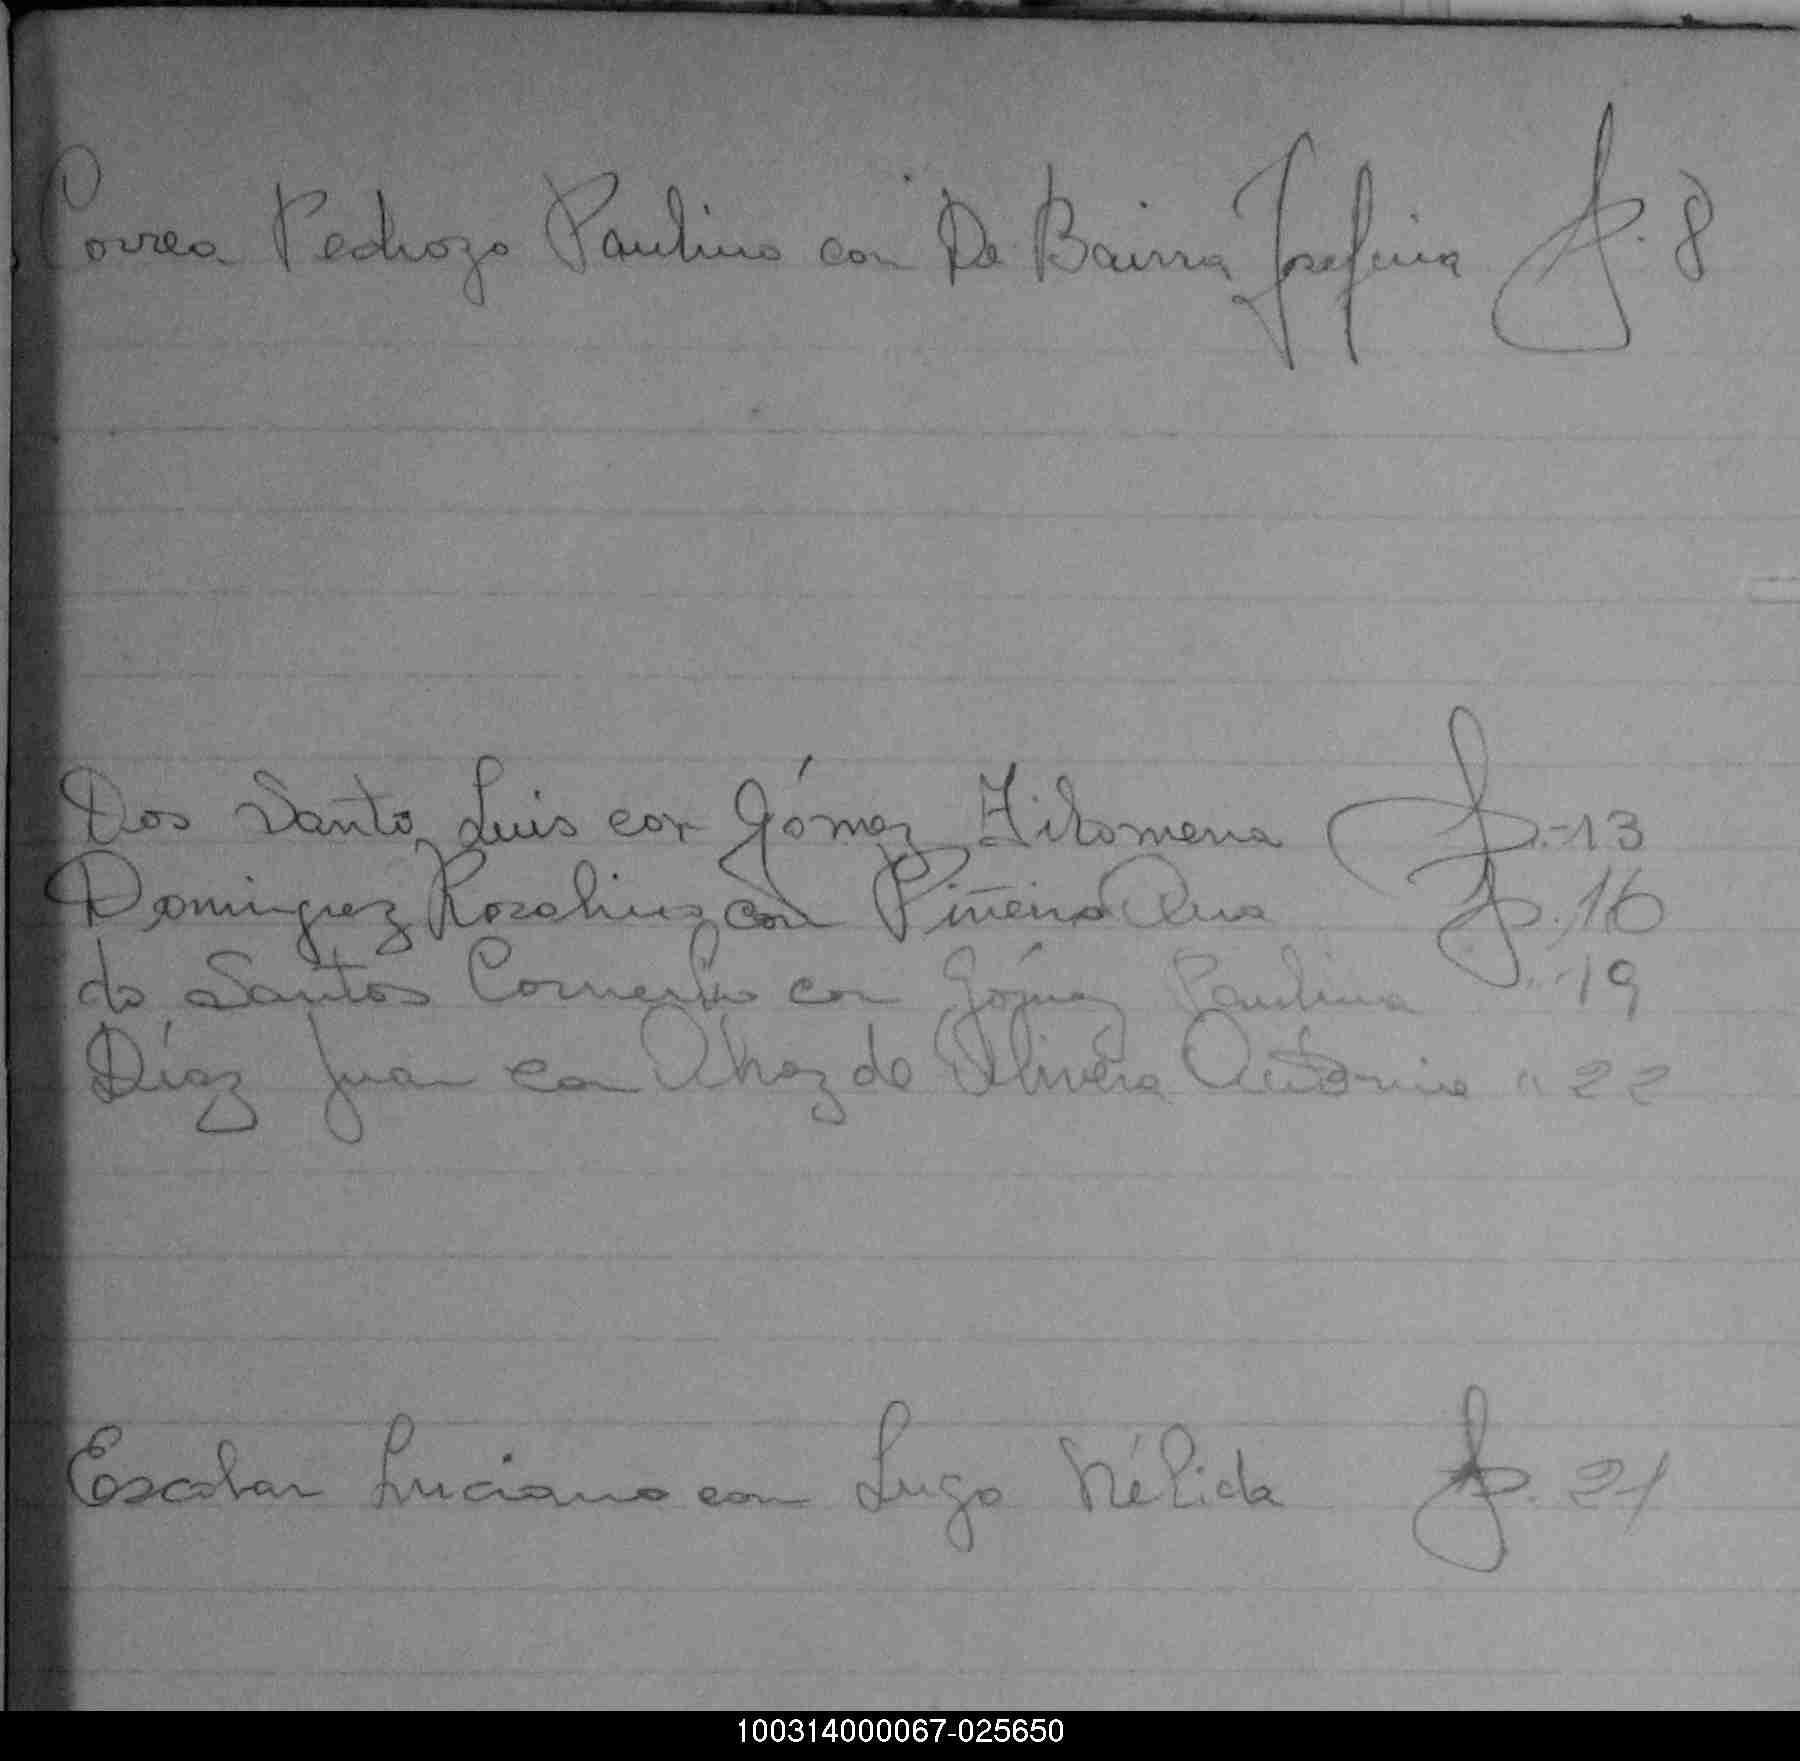 Correa Pedrozo Paulino con De Bairra Josefina f. 8
Dos Santo Luis con Gómez Filomena f. 13
Dominguez Rozalino con Piñeiro Ana f. 16
do Santos Cornelio con Gómez Paulina " 19
Díaz Juan con de Olivera Antonia " 22
Escobar Luciano con Lugo Nélida f. 21
100314000067-025650